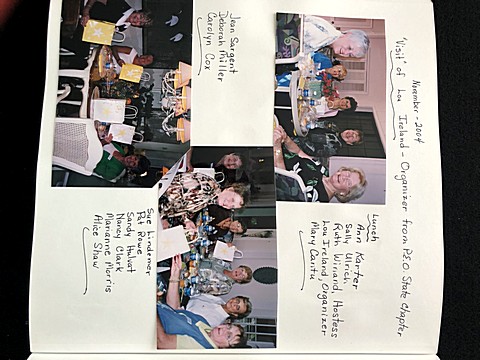 November - 2004
"Visit" of Lou Ireland - Organizer from P.E.O State Chapter
Lunch
Ann Karter
Sally Ulrich
Ruth Winard, Hostess
Lou Ireland, Organizer
Mary Cantu
Joan Sargent
Deborah Miller
Carolyn Cox
Sue Lindemer
Pat Rowe
Sandy Hulvat
Nancy Clark
Marianne Morris
Alice Shaw